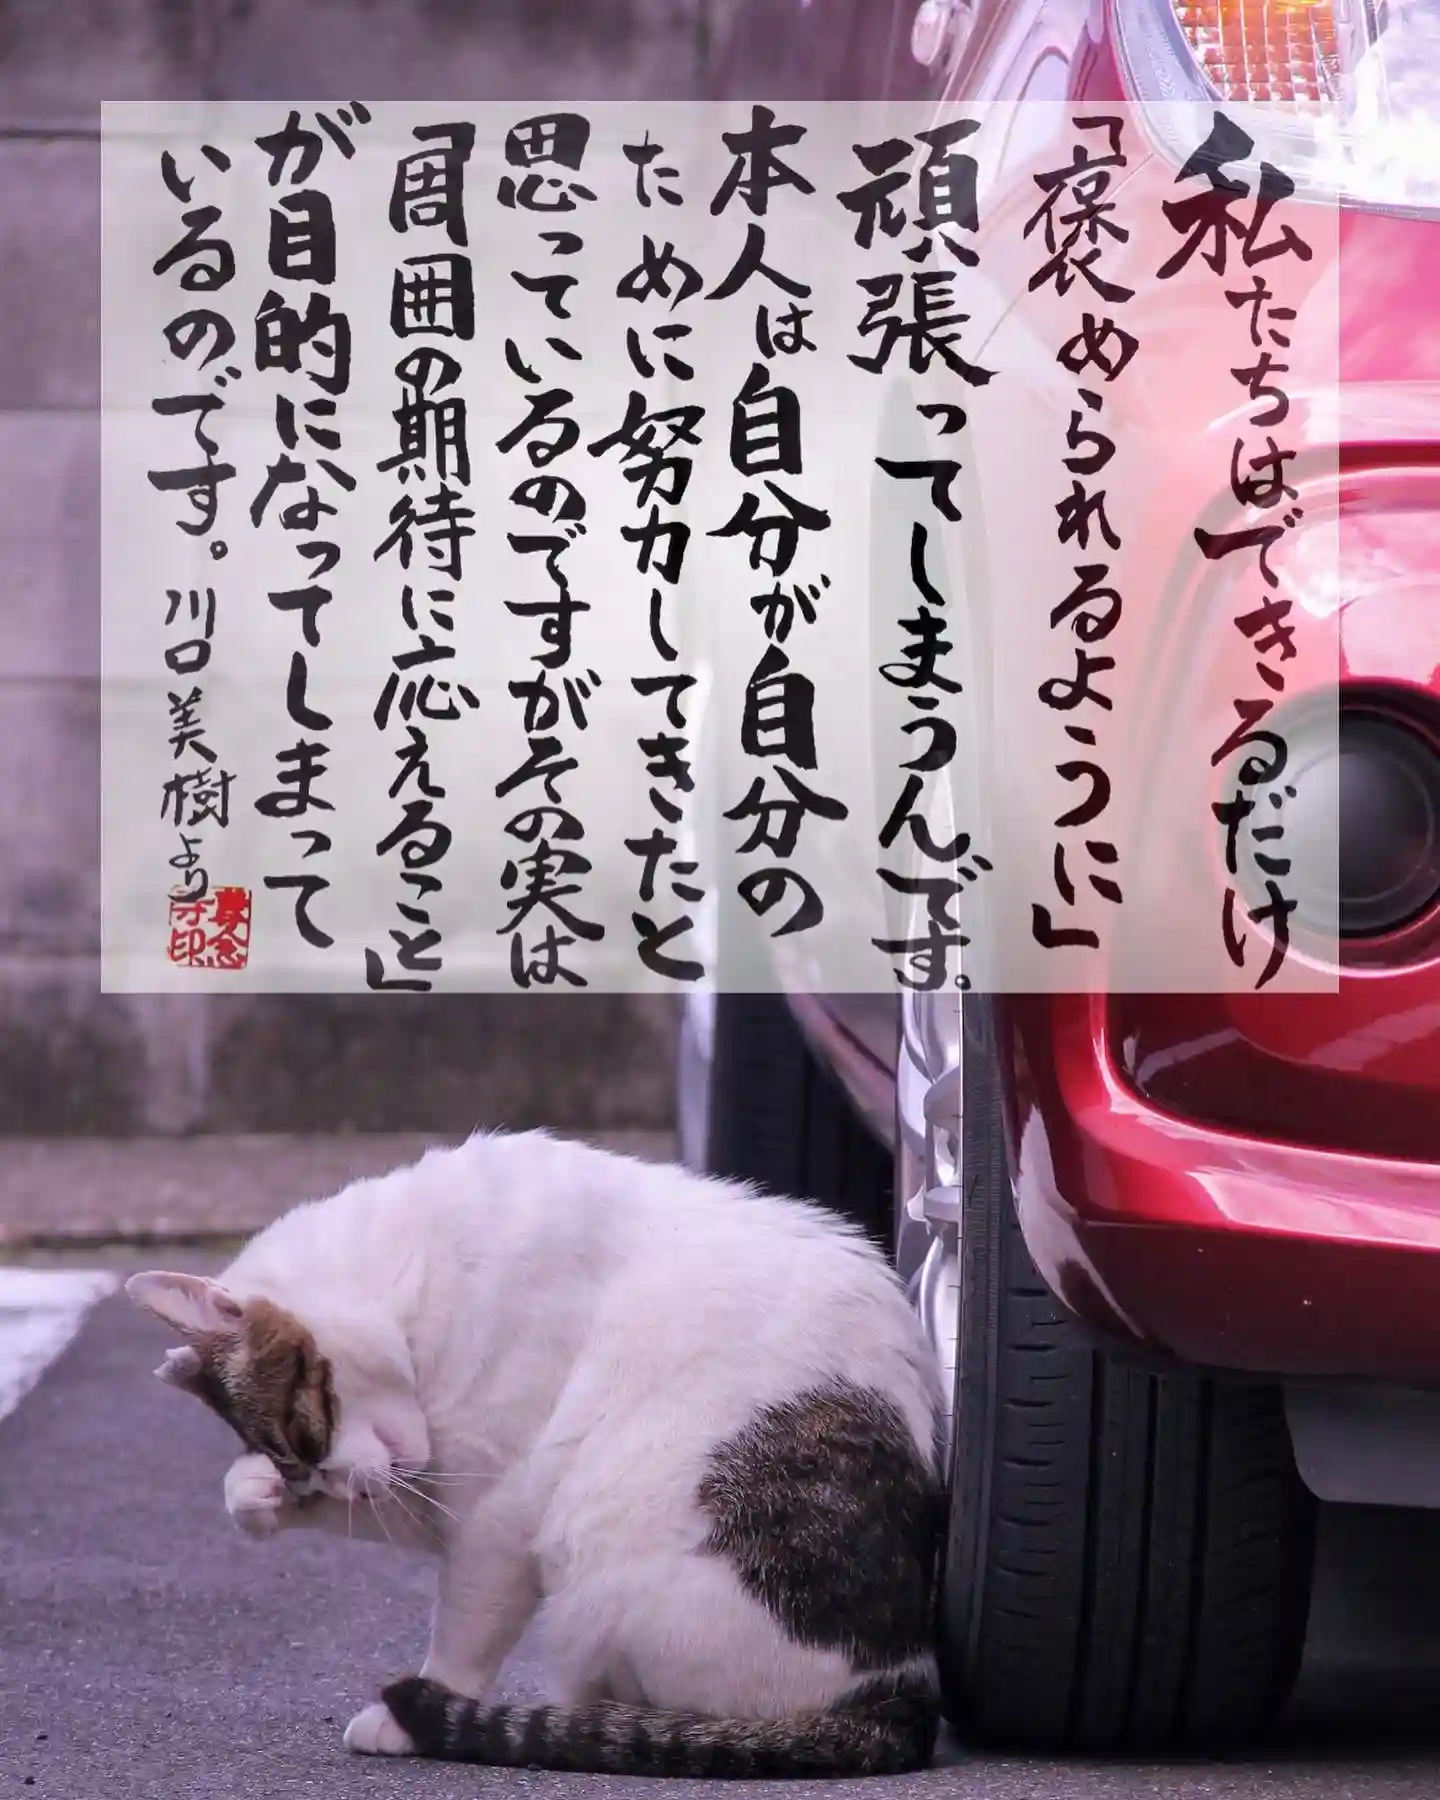 私たちはできるだけ
「褒められるように」
頑張ってしまうんです。
本人は自分が自分の
ために努力してきたと
思っているのですがその実は
「周囲の期待に応えること」
が目的になってしまって
いるのです。川口美樹より